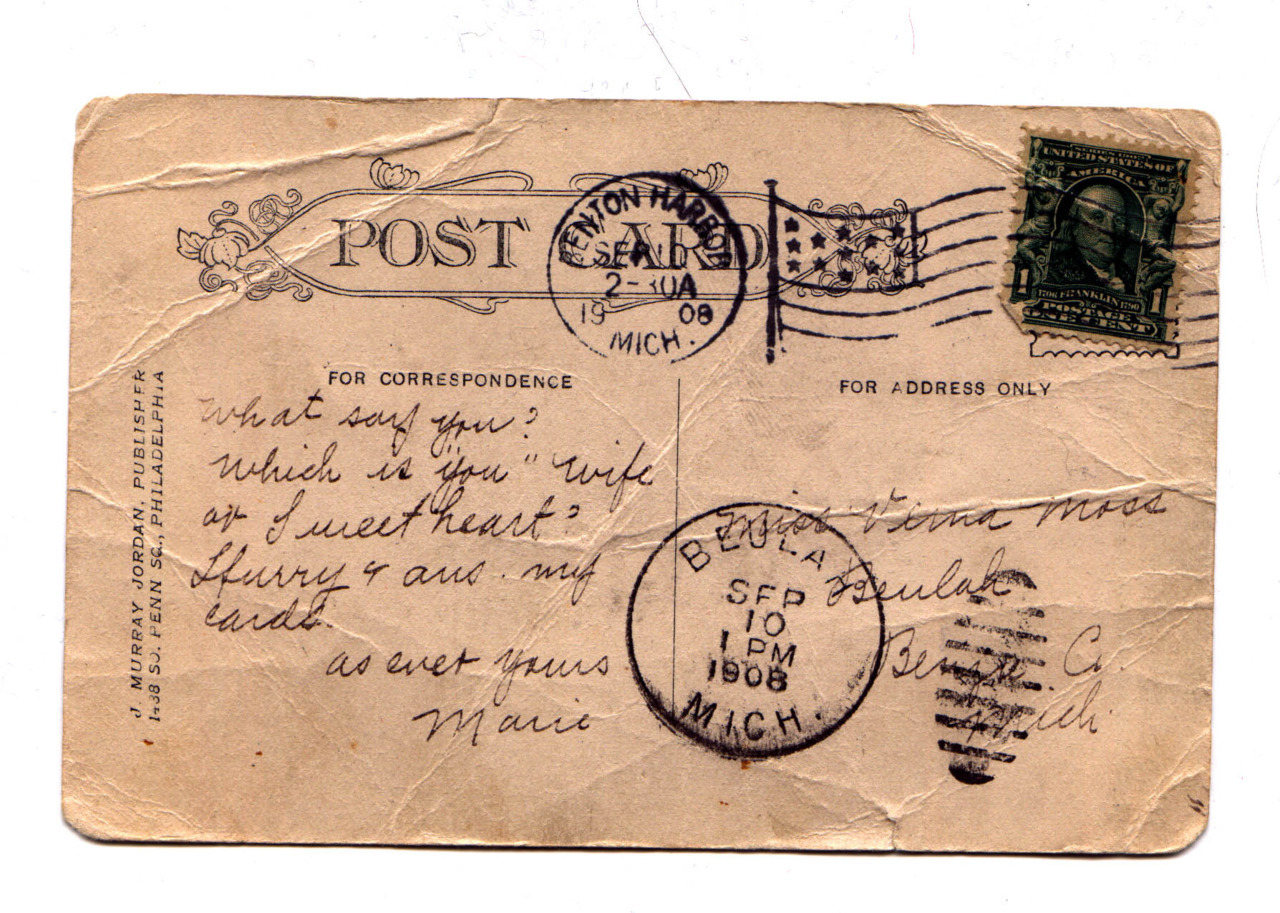 POST CARD
BENTON HARBOR
SEP
2-30A
1908
MICH.
SERIES 1902
UNITED STATES OF
AMERICA
1706 FRANKLIN 1790
1 1
POSTAGE
ONE CENT
J. MURRAY JORDAN, PUBLISHER
1438 SO. PENN SQ., PHILADELPHIA
FOR CORRESPONDENCE
What say you?
which is "you" wife
or Sweetheart?
Hurry & ans. my
cards.
as ever yours
Marie
FOR ADDRESS ONLY
Miss Verna Moss
Beulah
Benzie Co.
Mich.
BEULAH
SEP
10
1 PM
1908
MICH.